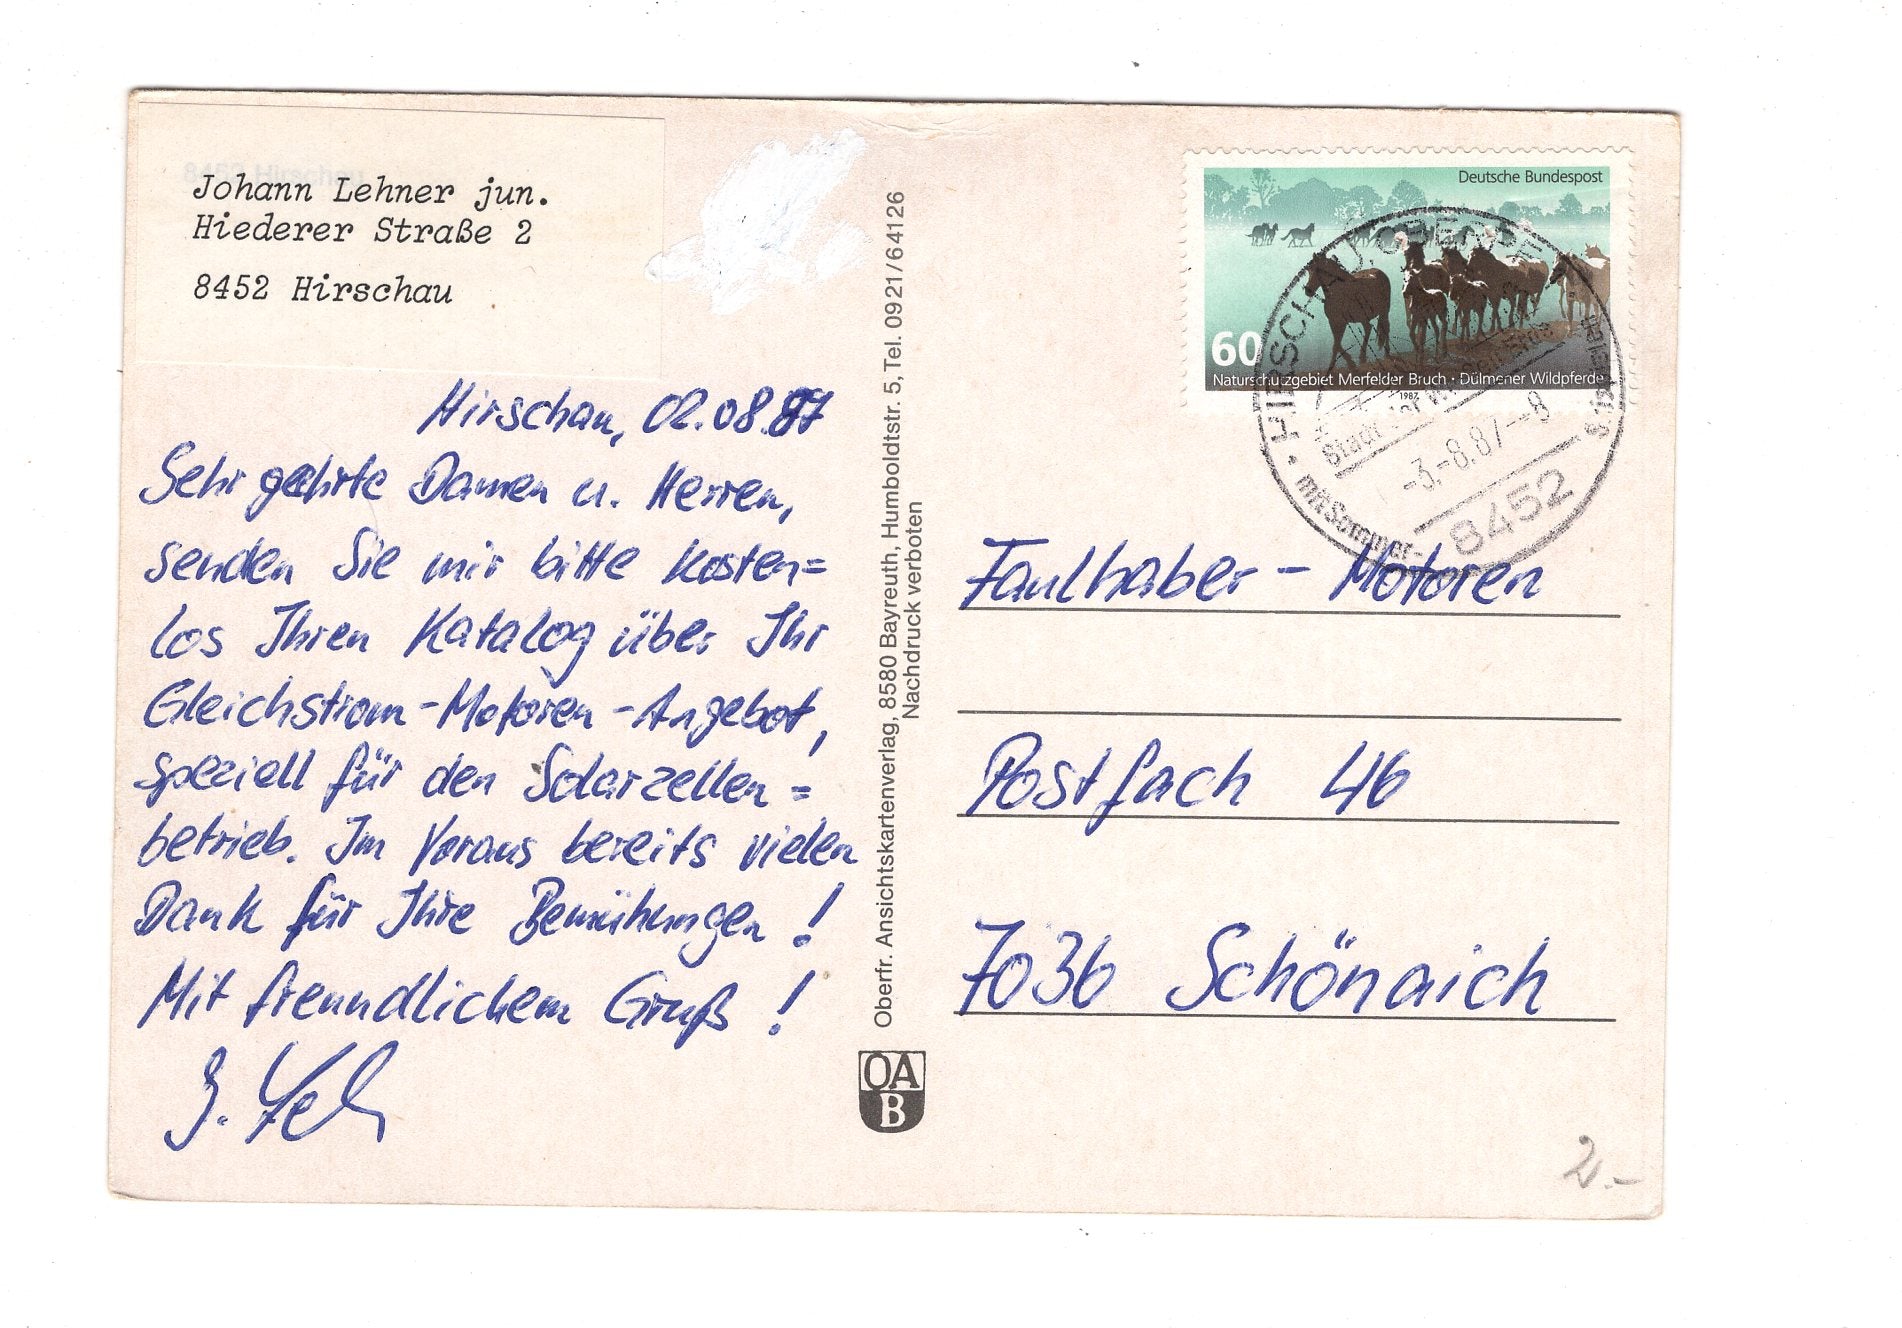 Johann Lehner jun.
Hiederer Straße 2
8452 Hirschau
8452 Hirschau
Hirschau, 02.08.87
Sehr geehrte Damen u. Herren,
senden Sie mir bitte kosten=
los Ihren Katalog über Ihr
Gleichstrom-Motoren-Angebot,
speziell für den Solarzellen=
betrieb. Im Voraus bereits vielen
Dank für Ihre Bemühungen!
Mit freundlichem Gruß!
Oberfr. Ansichtskartenverlag, 8580 Bayreuth, Humboldtstr. 5, Tel. 0921/64126
Nachdruck verboten
OAB
Deutsche Bundespost
60
Naturschutzgebiet Merfelder Bruch · Dülmener Wildpferde
1987
HIRSCHAU, OBERPF
Stadt der
-3.-8.87--8
8452
mit Sommer-
Faulhaber - Motoren
Postfach 46
7036 Schönaich
2.-